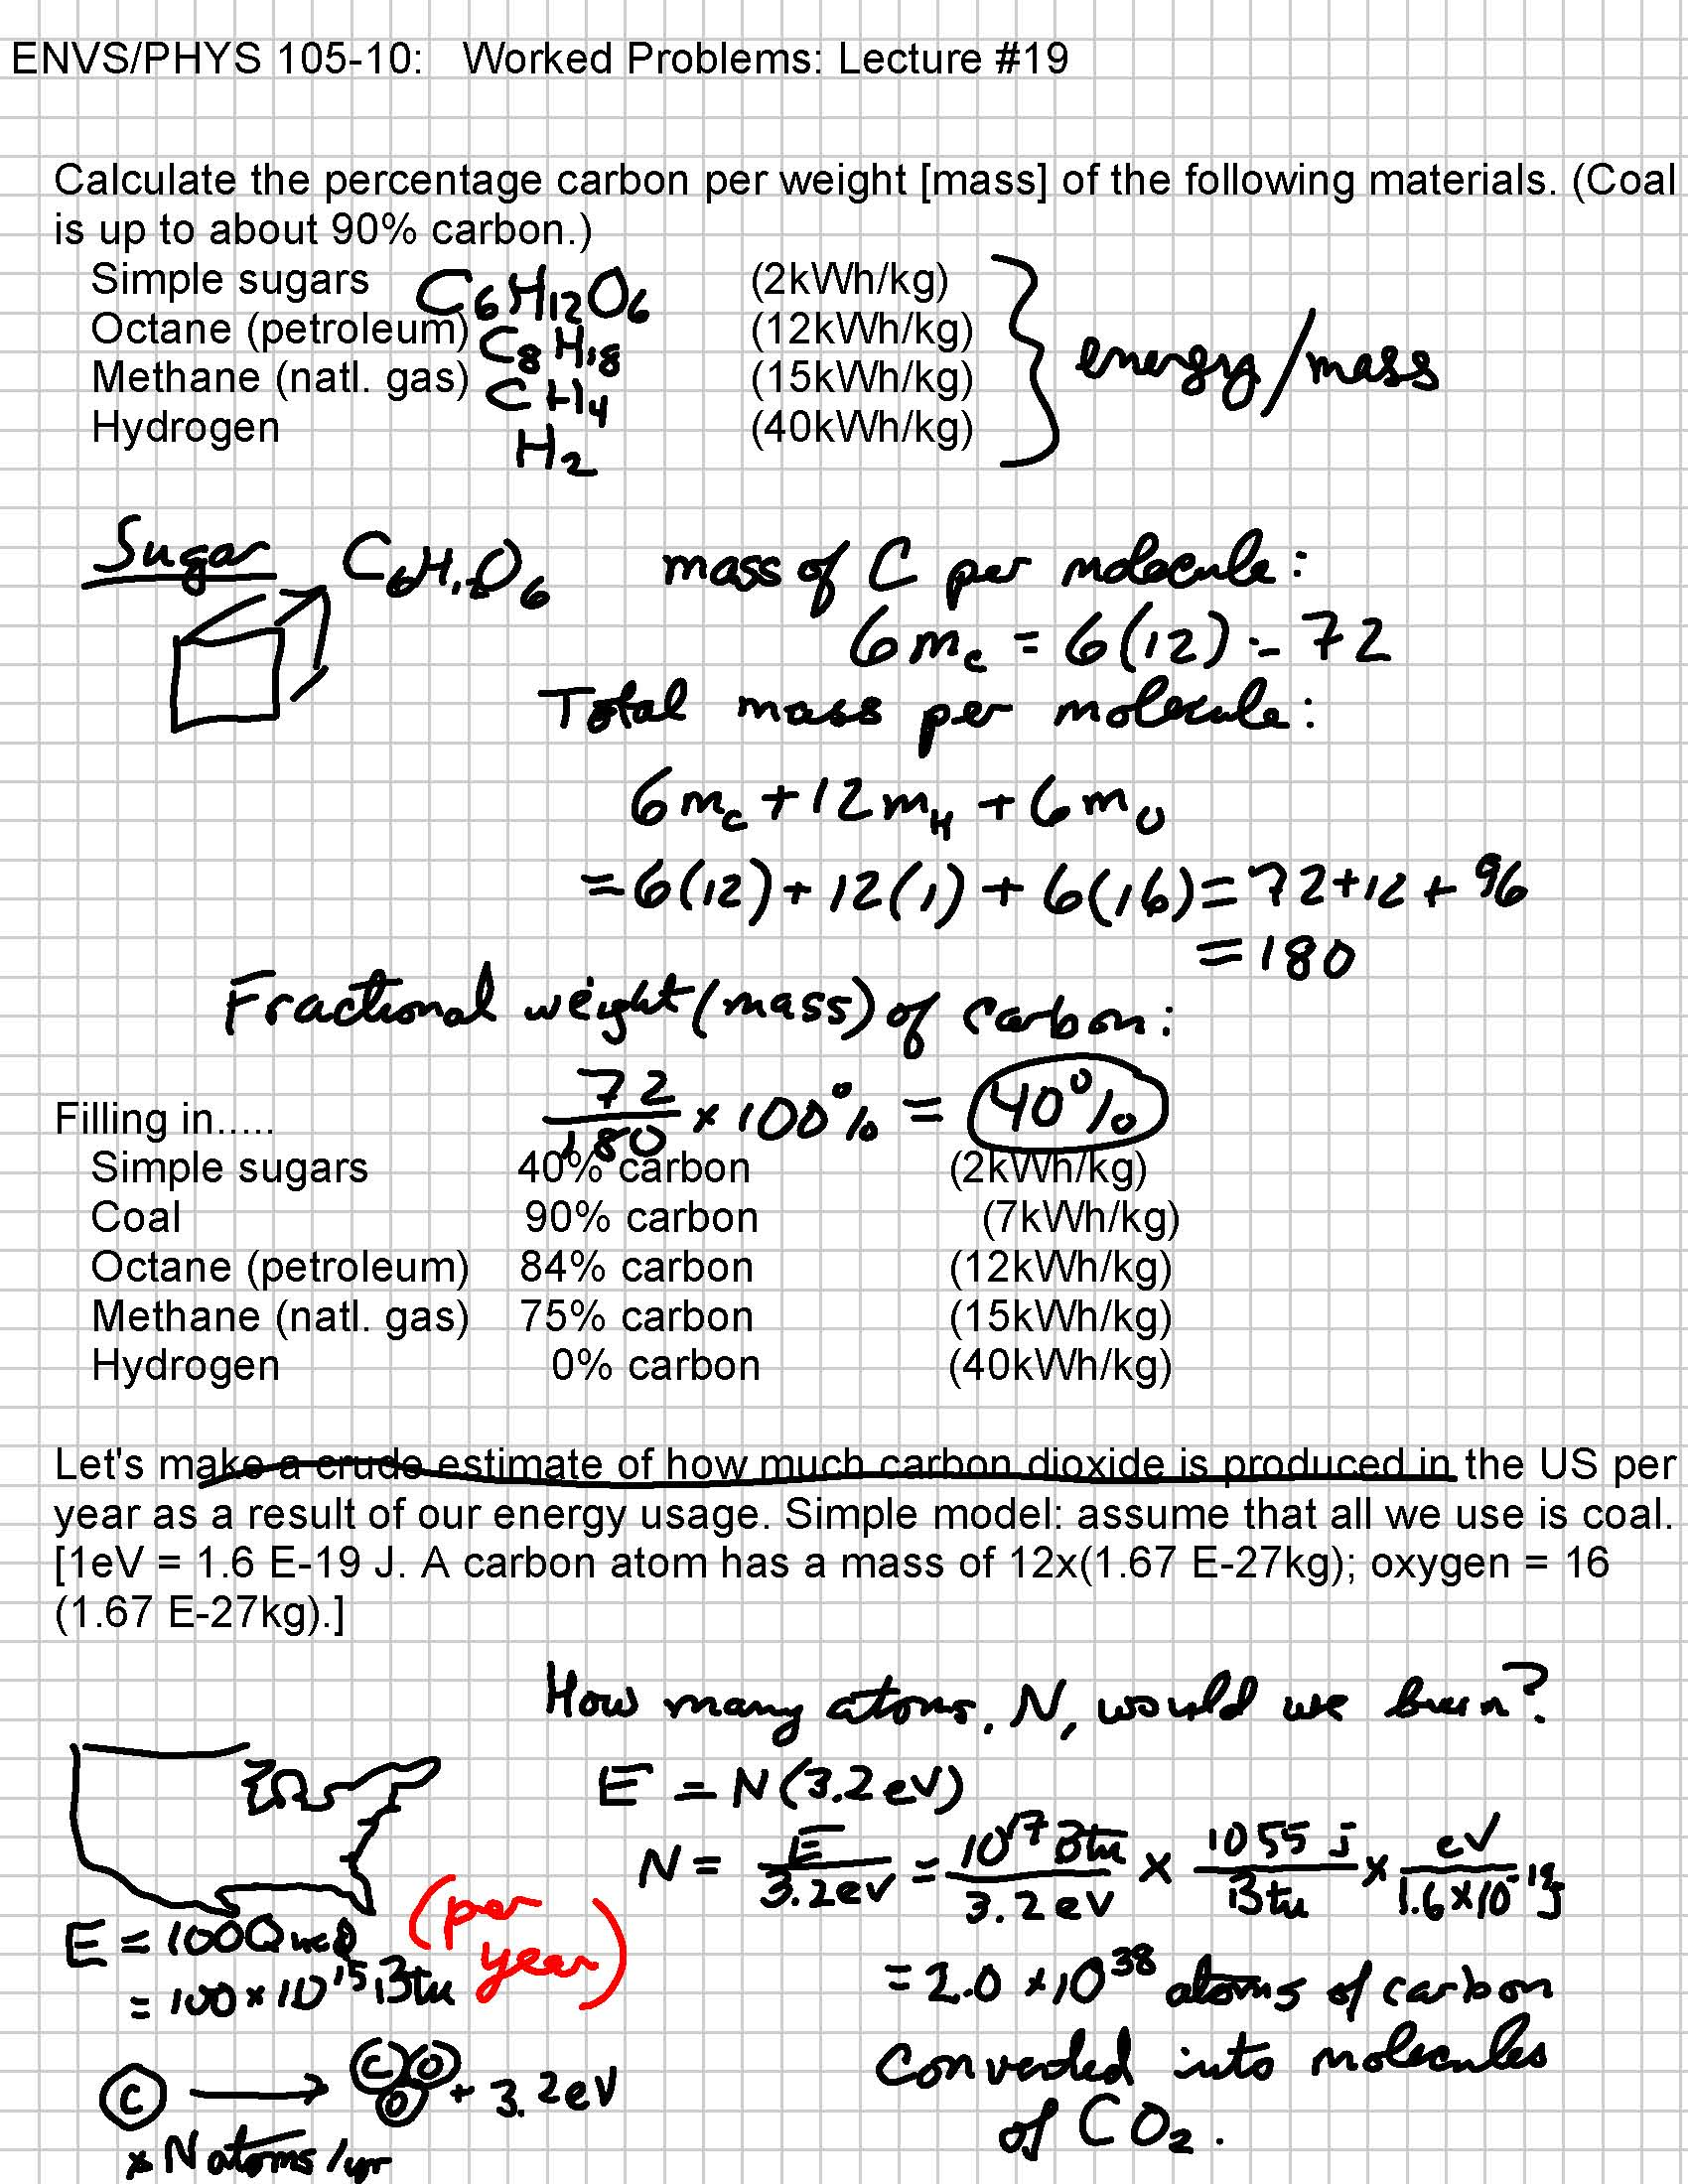 ENVS/PHYS 105-10: Worked Problems: Lecture #19
Calculate the percentage carbon per weight [mass] of the following materials. (Coal
is up to about 90% carbon.)
Simple sugars C6H12O6 (2kWh/kg)
Octane (petroleum) C8H18 (12kWh/kg)
Methane (natl. gas) CH4 (15kWh/kg)
Hydrogen H2 (40kWh/kg)
energy/mass
Sugar C6H12O6 mass of C per molecule:
6mc = 6(12) = 72
Total mass per molecule:
6mc + 12mH + 6mO
= 6(12) + 12(1) + 6(16) = 72 + 12 + 96
= 180
Fractional weight (mass) of carbon:
72/180 × 100% = 40%
Filling in.....
Simple sugars 40% carbon (2kWh/kg)
Coal 90% carbon (7kWh/kg)
Octane (petroleum) 84% carbon (12kWh/kg)
Methane (natl. gas) 75% carbon (15kWh/kg)
Hydrogen 0% carbon (40kWh/kg)
Let's make a crude estimate of how much carbon dioxide is produced in the US per
year as a result of our energy usage. Simple model: assume that all we use is coal.
[1eV = 1.6 E-19 J. A carbon atom has a mass of 12x(1.67 E-27kg); oxygen = 16
(1.67 E-27kg).]
How many atoms, N, would we burn?
E = N(3.2eV)
N = E/3.2eV = 10^17 Btu/3.2eV × 1055 J/Btu × eV/1.6×10^-19 J
= 2.0 × 10^38 atoms of carbon
converted into molecules
of CO2.
E = 100 Quad (per year)
= 100 × 10^15 Btu
C → C O O + 3.2eV
× N atoms/yr